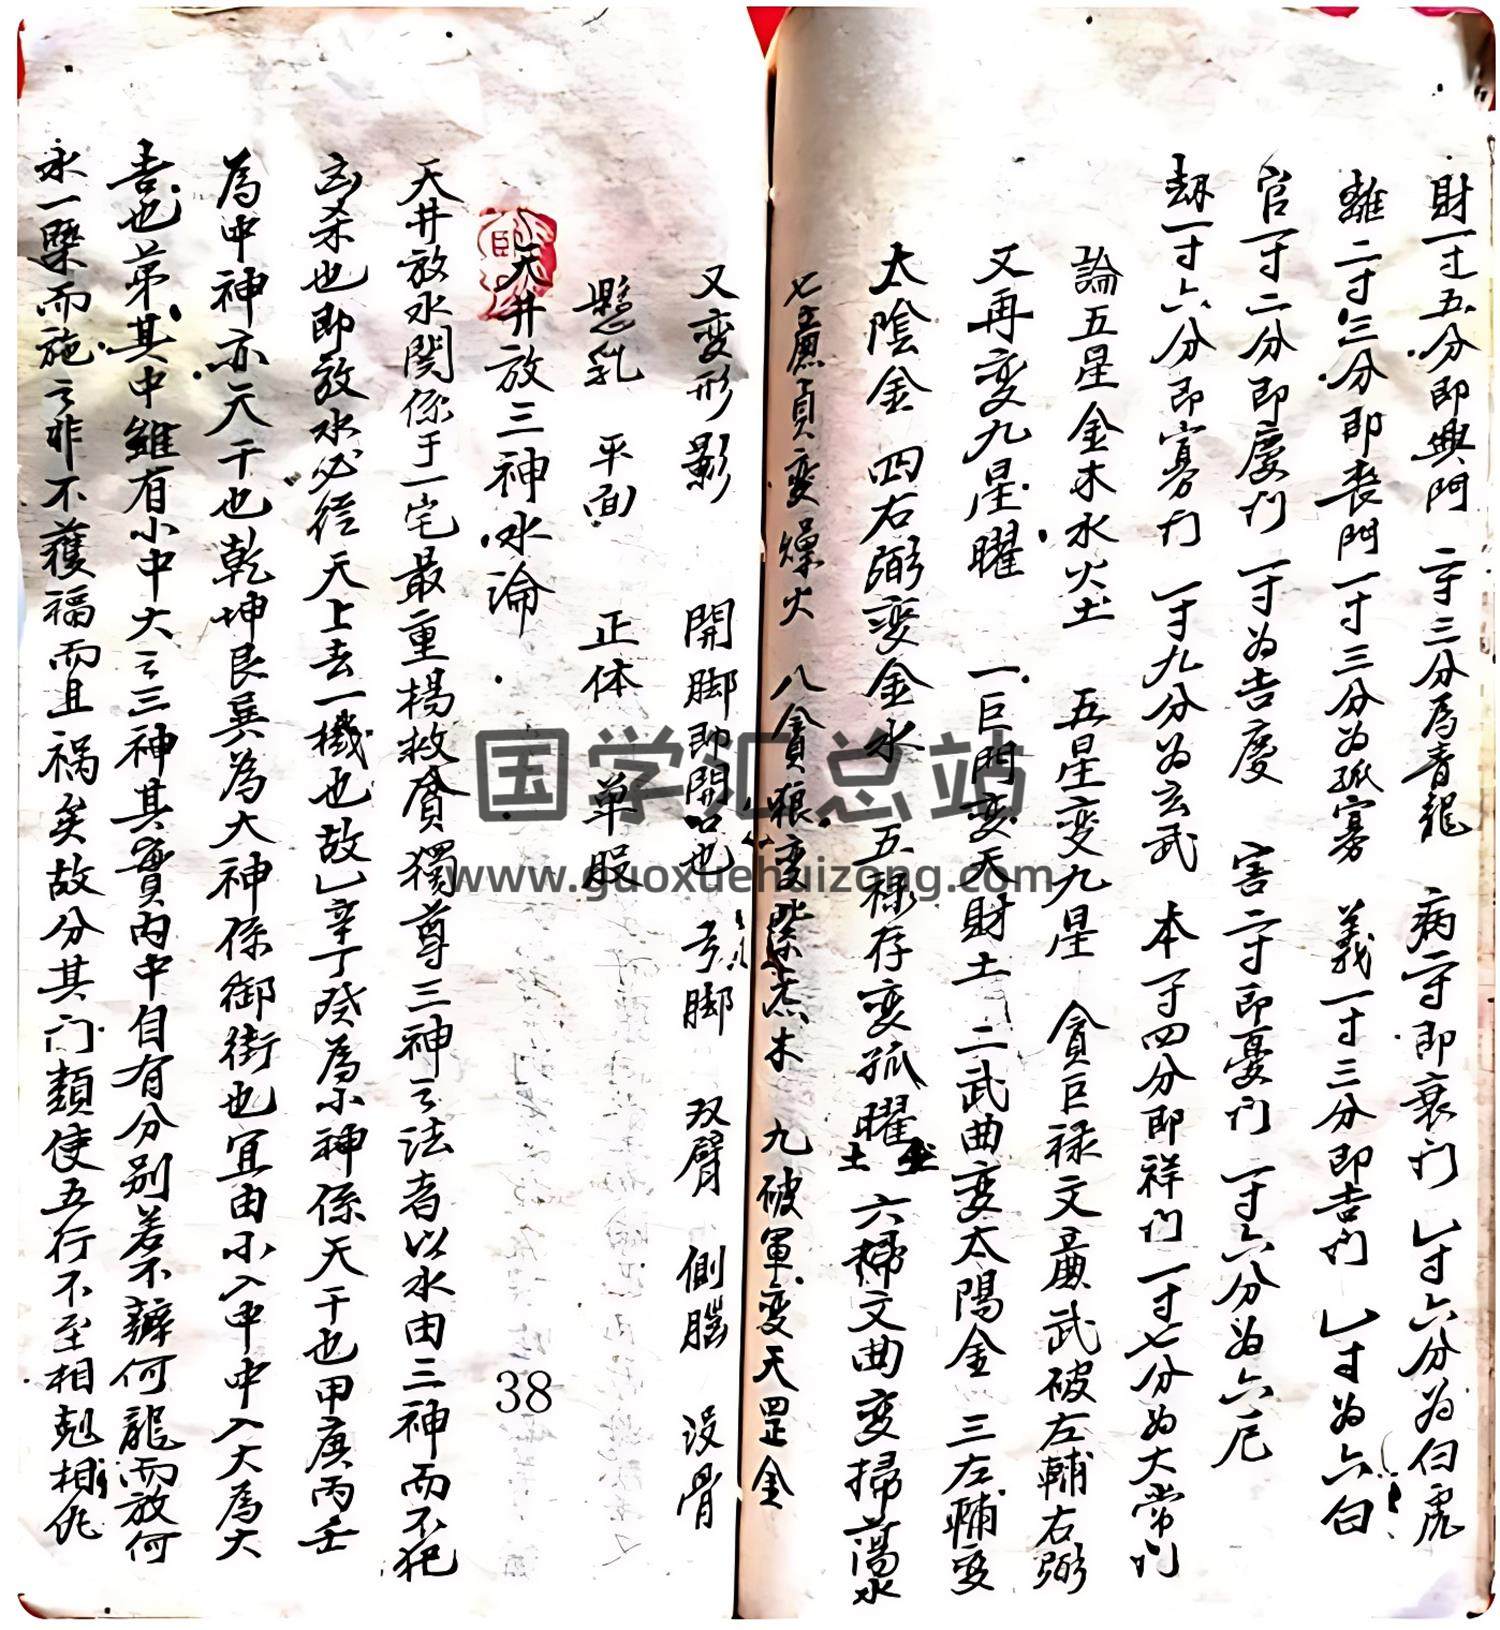 財一寸五分即興門 二寸三分為青龍 病二寸即衰门 七寸六分为白虎
離二寸三分即喪門 一寸三分为孤寡 義一寸三分即吉门 七寸为六白
官一寸二分即慶门 一寸为吉慶 害二寸即憂门 一寸六分为六厄
劫一寸六分即寡门 一寸九分为玄武 本一寸四分即祥门 一寸七分为大常门
論五星金木水火土 五星变九星 貪巨禄文廉武破左輔右弼
又再变九星曜 一巨門变天財土 二武曲变太陽金 三左輔变
太陰金 四右弼变金水 五禄存变孤曜土 六文曲变掃蕩水
七廉貞变燥火 八貪狼变紫炁木 九破軍变天罡金
又变形影 開脚即開口也 弓脚 双臂 側脳 没骨
懸乳 平面 正体 单股
天井放三神水論
天井放水関係于一宅最重楊救貧獨尊三神之法者以水由三神而不犯
凶杀也即放水必從天上去一機也故乙辛丁癸為小神係天干也甲庚丙壬
為中神亦天干也乾坤艮巽為大神係御街也宜由小入中中入大為大
吉也苐其中雖有小中大之三神其實内中自有分别若不辨何龍而放何
水一槩而施之非不獲福而且祸矣故分其门類使五行不至相尅相仇
38
国学汇总站
www.guoxuehuizong.com